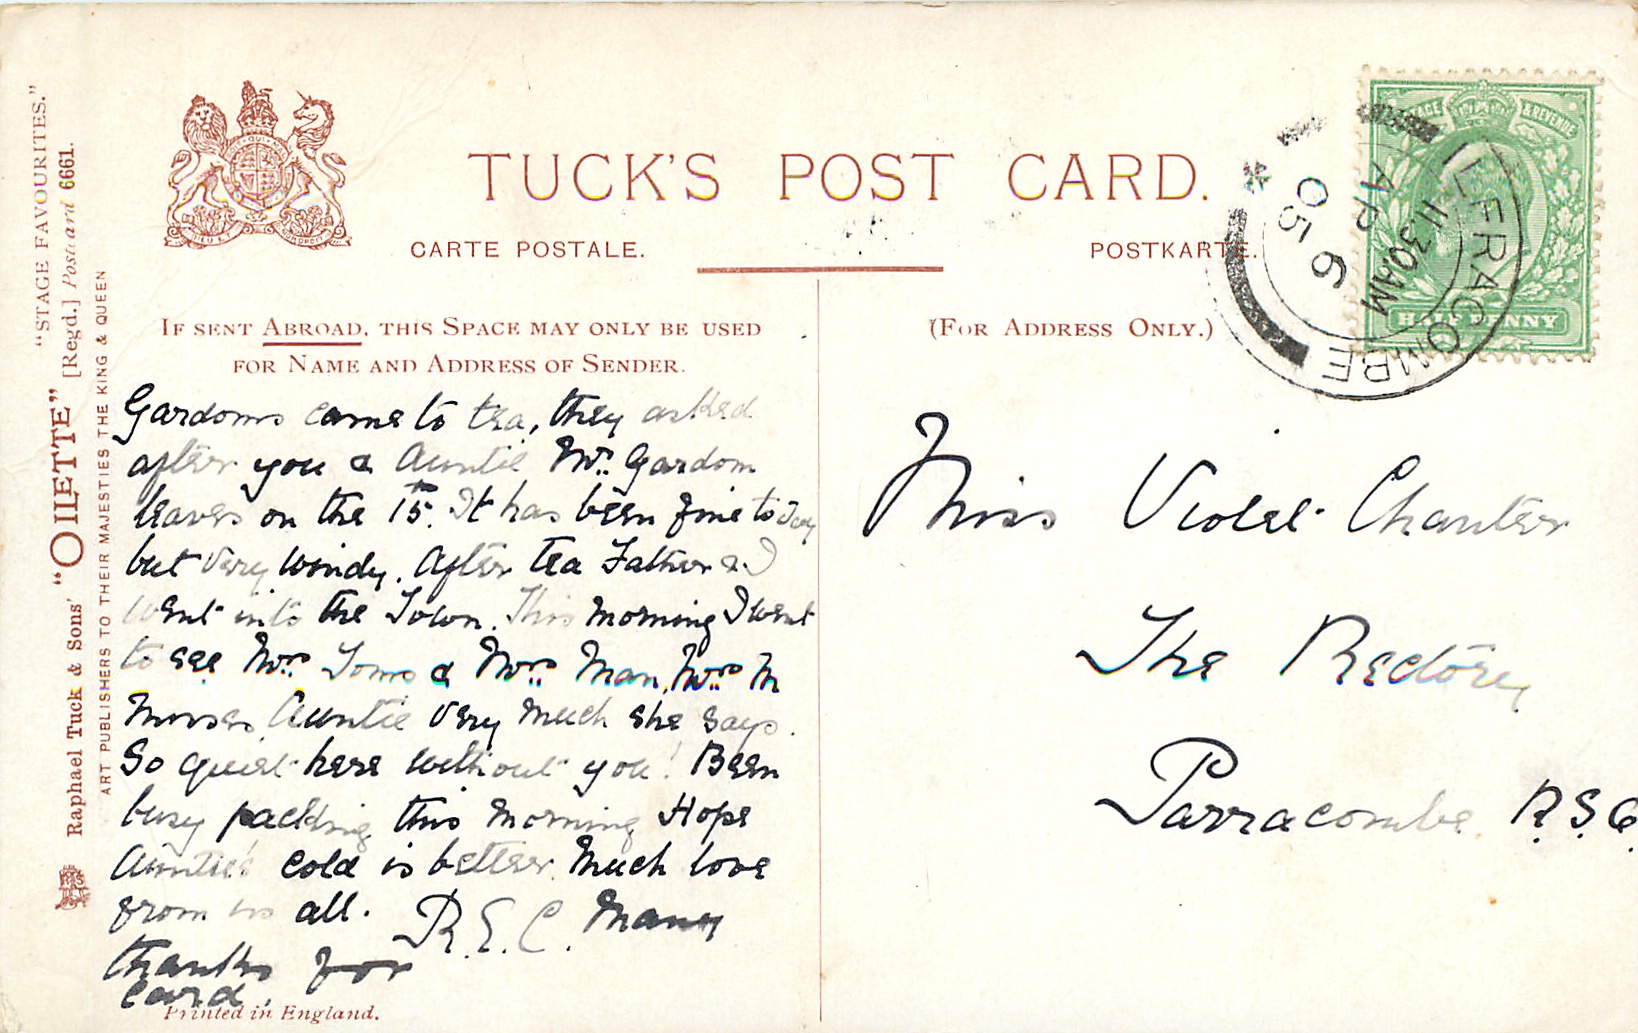 "STAGE FAVOURITES."
"OILETTE" [Regd.] Postcard 6661.
Raphael Tuck & Sons'
ART PUBLISHERS TO THEIR MAJESTIES THE KING & QUEEN
TUCK'S POST CARD.
CARTE POSTALE.
POSTKARTE.
IF SENT ABROAD, THIS SPACE MAY ONLY BE USED
FOR NAME AND ADDRESS OF SENDER.
(FOR ADDRESS ONLY.)
& REVENUE
HALFPENNY
ILFRACOMBE
11.30AM
AP 6
05
Gardoms came to tea, they asked
after you & Auntie Mrs. Gardom
leaves on the 15th. It has been fine to day
but very windy. After tea Father & I
went into the Town. This morning I went
to see Mrs. Toms & Mrs. Man, Mrs. M
misses Auntie very much she says.
So quiet here without you! Been
busy packing this morning Hope
Auntie's cold is better. Much love
from us all. R.E.C. Many
thanks for
card.
Printed in England.
Miss Violet Chanter
The Rectory
Parracombe R.S.O.